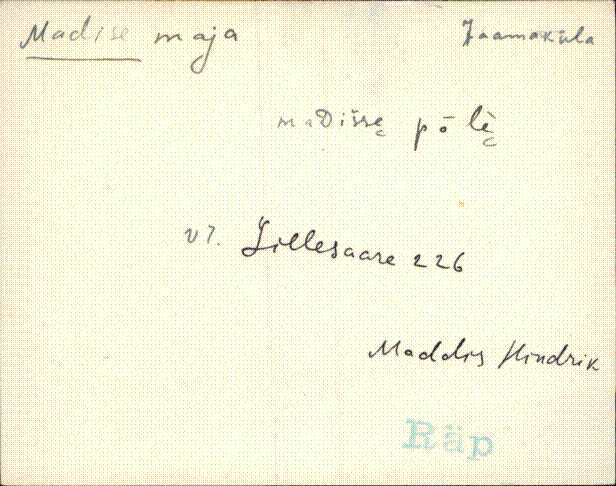 Madise maja Jaamaküla
maDišše̬ pō lè̬
vt. Lillesaare 226
Maddis Hindrik
Räp